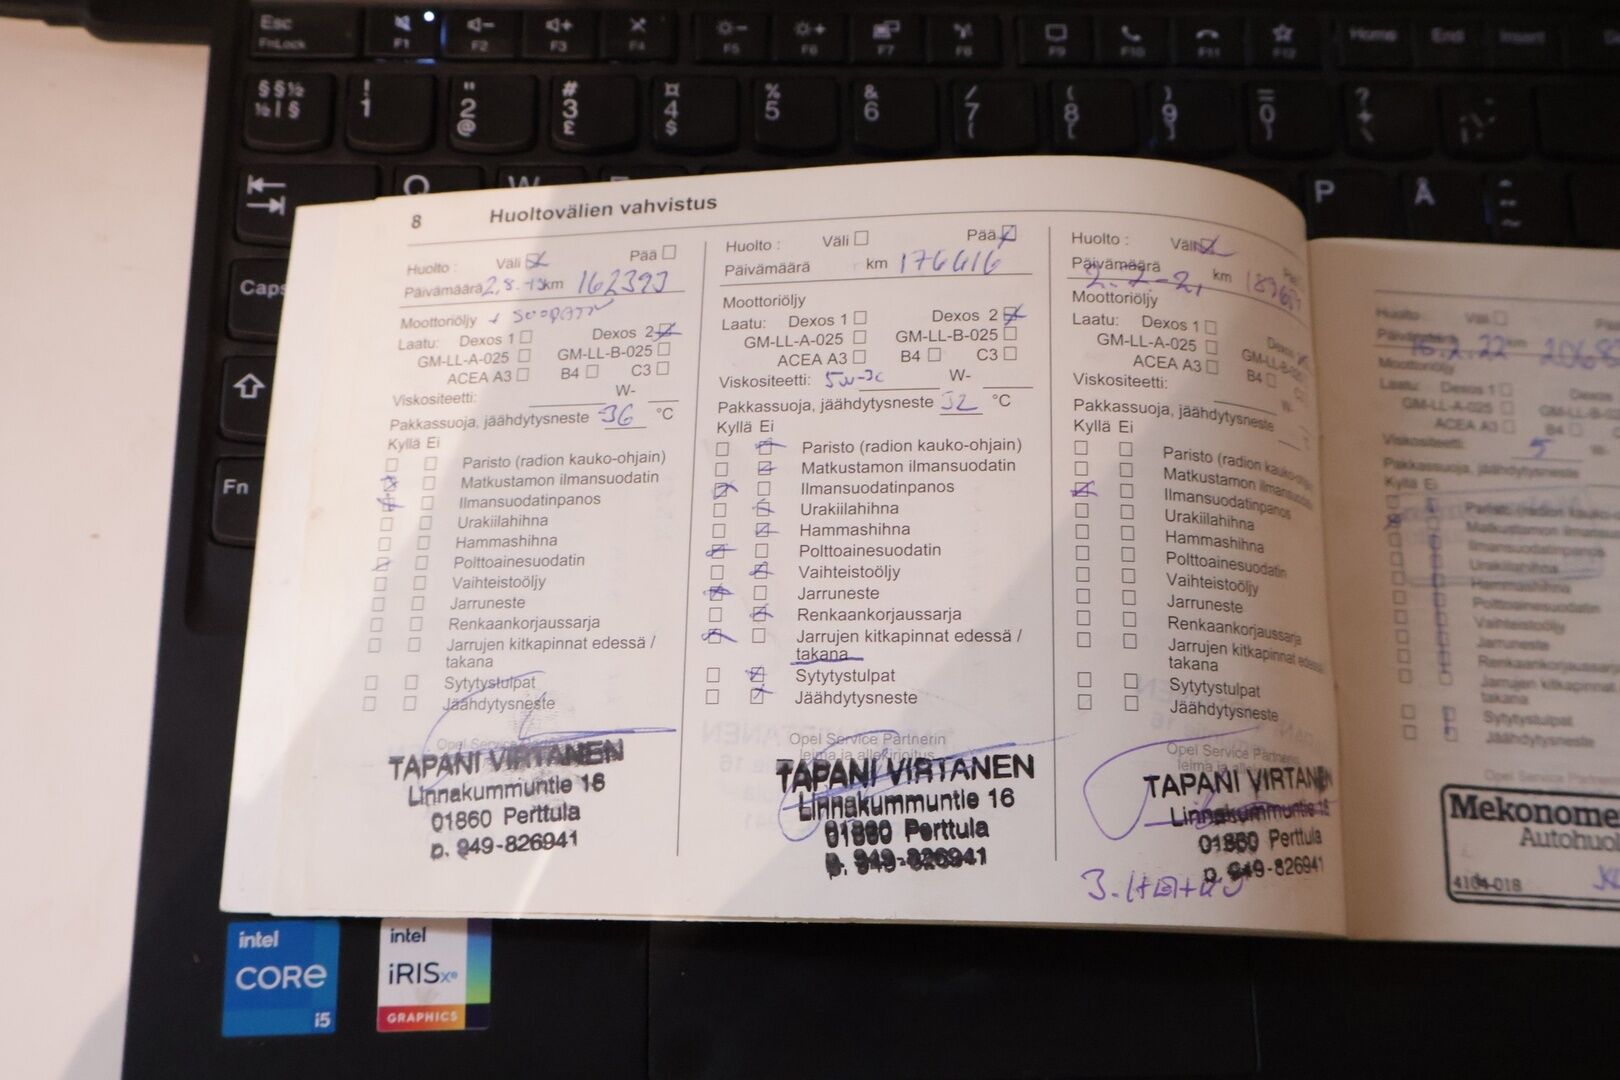 Esc
FnLock
F1
F2
F3
F4
F5
F6
F7
F8
F9
F10
F11
F12
Home
End
Insert
1
2
@
3
£
4
$
5
6
7
8
9
0
Q
W
P
Å
Caps
Fn
8 Huoltovälien vahvistus
Huolto: Väli Pää
Päivämäärä 2.8. km 162393
Moottoriöljy
Laatu: Dexos 1 Dexos 2
GM-LL-A-025 GM-LL-B-025
ACEA A3 B4 C3
Viskositeetti: W-
Pakkassuoja, jäähdytysneste 36 °C
Kyllä Ei
Paristo (radion kauko-ohjain)
Matkustamon ilmansuodatin
Ilmansuodatinpanos
Urakiilahihna
Hammashihna
Polttoainesuodatin
Vaihteistoöljy
Jarruneste
Renkaankorjaussarja
Jarrujen kitkapinnat edessä /
takana
Sytytystulpat
Jäähdytysneste
Opel Service
TAPANI VIRTANEN
Linnakummuntie 16
01860 Perttula
p. 949-826941
Huolto: Väli Pää
Päivämäärä km 176616
Moottoriöljy
Laatu: Dexos 1 Dexos 2
GM-LL-A-025 GM-LL-B-025
ACEA A3 B4 C3
Viskositeetti: 5w-30 W-
Pakkassuoja, jäähdytysneste 32 °C
Kyllä Ei
Paristo (radion kauko-ohjain)
Matkustamon ilmansuodatin
Ilmansuodatinpanos
Urakiilahihna
Hammashihna
Polttoainesuodatin
Vaihteistoöljy
Jarruneste
Renkaankorjaussarja
Jarrujen kitkapinnat edessä /
takana
Sytytystulpat
Jäähdytysneste
Opel Service Partnerin
leima ja allekirjoitus
TAPANI VIRTANEN
Linnakummuntie 16
01860 Perttula
p. 949-826941
Huolto: Väli
Päivämäärä km
Moottoriöljy
Laatu: Dexos 1
GM-LL-A-025
ACEA A3 B4
Viskositeetti: W-
Pakkassuoja, jäähdytysneste
Kyllä Ei
Paristo (radion
Matkustamon
Ilmansuodatinpanos
Urakiilahihna
Hammashihna
Polttoainesuodatin
Vaihteistoöljy
Jarruneste
Renkaankorjaussarja
Jarrujen kitkapinnat edessä
takana
Sytytystulpat
Jäähdytysneste
Opel Service
TAPANI VIRTANEN
Linnakummuntie 16
01860 Perttula
p. 949-826941
Huolto: Väli
Päivämäärä 2.22 km
Moottoriöljy
Laatu: Dexos 1
GM-LL-A-025
ACEA A3 B4
Viskositeetti: 5 W-
Pakkassuoja, jäähdytysneste
Kyllä Ei
Matkustamon
Ilmansuodatinpanos
Urakiilahihna
Hammashihna
Polttoainesuodatin
Vaihteistoöljy
Jarruneste
Renkaankorjaussarja
Jarrujen kitkapinnat
takana
Sytytystulpat
Jäähdytysneste
Opel Service
4104-018
intel
CORE
i5
intel
iRIS xe
GRAPHICS